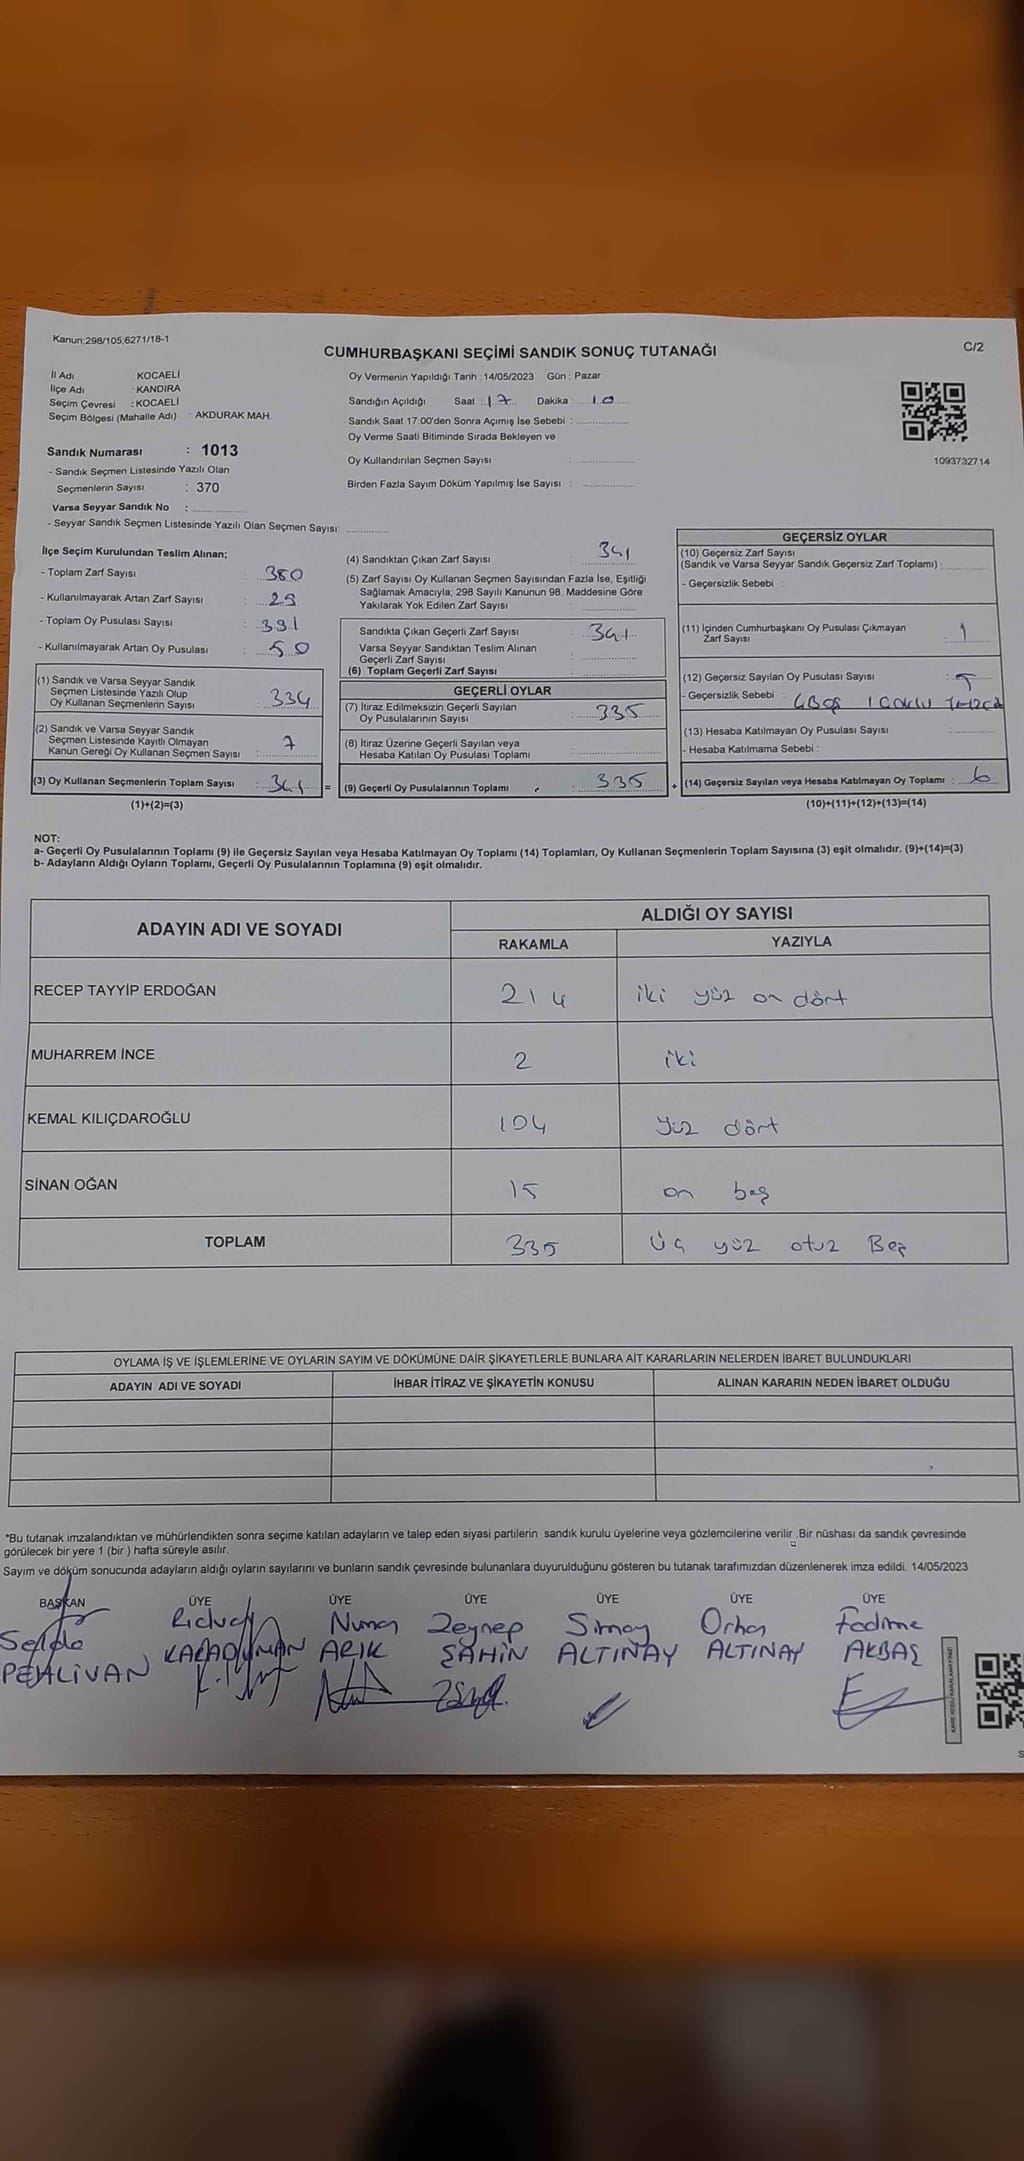 Kanun;298/105,6271/18-1
CUMHURBAŞKANI SEÇİMİ SANDIK SONUÇ TUTANAĞI
C/2
İl Adı : KOCAELİ
İlçe Adı : KANDIRA
Seçim Çevresi : KOCAELİ
Seçim Bölgesi (Mahalle Adı) : AKDURAK MAH.
Sandık Numarası : 1013
- Sandık Seçmen Listesinde Yazılı Olan
Seçmenlerin Sayısı : 370
Varsa Seyyar Sandık No :
- Seyyar Sandık Seçmen Listesinde Yazılı Olan Seçmen Sayısı:
Oy Vermenin Yapıldığı Tarih : 14/05/2023 Gün : Pazar
Sandığın Açıldığı Saat : 17 Dakika : 10
Sandık Saat 17:00'den Sonra Açımış İse Sebebi :
Oy Verme Saati Bitiminde Sırada Bekleyen ve
Oy Kullandırılan Seçmen Sayısı :
Birden Fazla Sayım Döküm Yapılmış İse Sayısı :
1093732714
İlçe Seçim Kurulundan Teslim Alınan;
- Toplam Zarf Sayısı : 380
- Kullanılmayarak Artan Zarf Sayısı :
- Toplam Oy Pusulası Sayısı : 391
- Kullanılmayarak Artan Oy Pusulası : 50
(1) Sandık ve Varsa Seyyar Sandık
Seçmen Listesinde Yazılı Olup
Oy Kullanan Seçmenlerin Sayısı : 334
(2) Sandık ve Varsa Seyyar Sandık
Seçmen Listesinde Kayıtlı Olmayan
Kanun Gereği Oy Kullanan Seçmen Sayısı : 7
(3) Oy Kullanan Seçmenlerin Toplam Sayısı : 341
(1)+(2)=(3)
(4) Sandıktan Çıkan Zarf Sayısı : 341
(5) Zarf Sayısı Oy Kullanan Seçmen Sayısından Fazla İse, Eşitliği
Sağlamak Amacıyla; 298 Sayılı Kanunun 98. Maddesine Göre
Yakılarak Yok Edilen Zarf Sayısı :
Sandıkta Çıkan Geçerli Zarf Sayısı : 341
Varsa Seyyar Sandıktan Teslim Alınan
Geçerli Zarf Sayısı :
(6) Toplam Geçerli Zarf Sayısı :
GEÇERLİ OYLAR
(7) İtiraz Edilmeksizin Geçerli Sayılan
Oy Pusulalarının Sayısı : 335
(8) İtiraz Üzerine Geçerli Sayılan veya
Hesaba Katılan Oy Pusulası Toplamı :
= (9) Geçerli Oy Pusulalarının Toplamı : 335
GEÇERSİZ OYLAR
(10) Geçersiz Zarf Sayısı
(Sandık ve Varsa Seyyar Sandık Geçersiz Zarf Toplamı) :
- Geçersizlik Sebebi :
(11) İçinden Cumhurbaşkanı Oy Pusulası Çıkmayan
Zarf Sayısı : 1
(12) Geçersiz Sayılan Oy Pusulası Sayısı : 5
- Geçersizlik Sebebi : 4 BOŞ 1
(13) Hesaba Katılmayan Oy Pusulası Sayısı :
- Hesaba Katılmama Sebebi :
+ (14) Geçersiz Sayılan veya Hesaba Katılmayan Oy Toplamı : 6
(10)+(11)+(12)+(13)=(14)
NOT:
a- Geçerli Oy Pusulalarının Toplamı (9) ile Geçersiz Sayılan veya Hesaba Katılmayan Oy Toplamı (14) Toplamları, Oy Kullanan Seçmenlerin Toplam Sayısına (3) eşit olmalıdır. (9)+(14)=(3)
b- Adayların Aldığı Oyların Toplamı, Geçerli Oy Pusulalarının Toplamına (9) eşit olmalıdır.
ADAYIN ADI VE SOYADI ALDIĞI OY SAYISI
RAKAMLA YAZIYLA
RECEP TAYYİP ERDOĞAN 214 iki yüz on dört
MUHARREM İNCE 2 iki
KEMAL KILIÇDAROĞLU 104 yüz dört
SİNAN OĞAN 15 on beş
TOPLAM 335 üç yüz otuz Beş
OYLAMA İŞ VE İŞLEMLERİNE VE OYLARIN SAYIM VE DÖKÜMÜNE DAİR ŞİKAYETLERLE BUNLARA AİT KARARLARIN NELERDEN İBARET BULUNDUKLARI
ADAYIN ADI VE SOYADI İHBAR İTİRAZ VE ŞİKAYETİN KONUSU ALINAN KARARIN NEDEN İBARET OLDUĞU
*Bu tutanak imzalandıktan ve mühürlendikten sonra seçime katılan adayların ve talep eden siyasi partilerin sandık kurulu üyelerine veya gözlemcilerine verilir .Bir nüshası da sandık çevresinde
görülecek bir yere 1 (bir ) hafta süreyle asılır.
Sayım ve döküm sonucunda adayların aldığı oyların sayılarını ve bunların sandık çevresinde bulunanlara duyurulduğunu gösteren bu tutanak tarafımızdan düzenlenerek imza edildi. 14/05/2023
BAŞKAN ÜYE ÜYE ÜYE ÜYE ÜYE ÜYE
Selda Numan Zeynep Simay Orhan Fadime
PEHLİVAN KARADUMAN ARIK ŞAHİN ALTINAY ALTINAY AKBAŞ